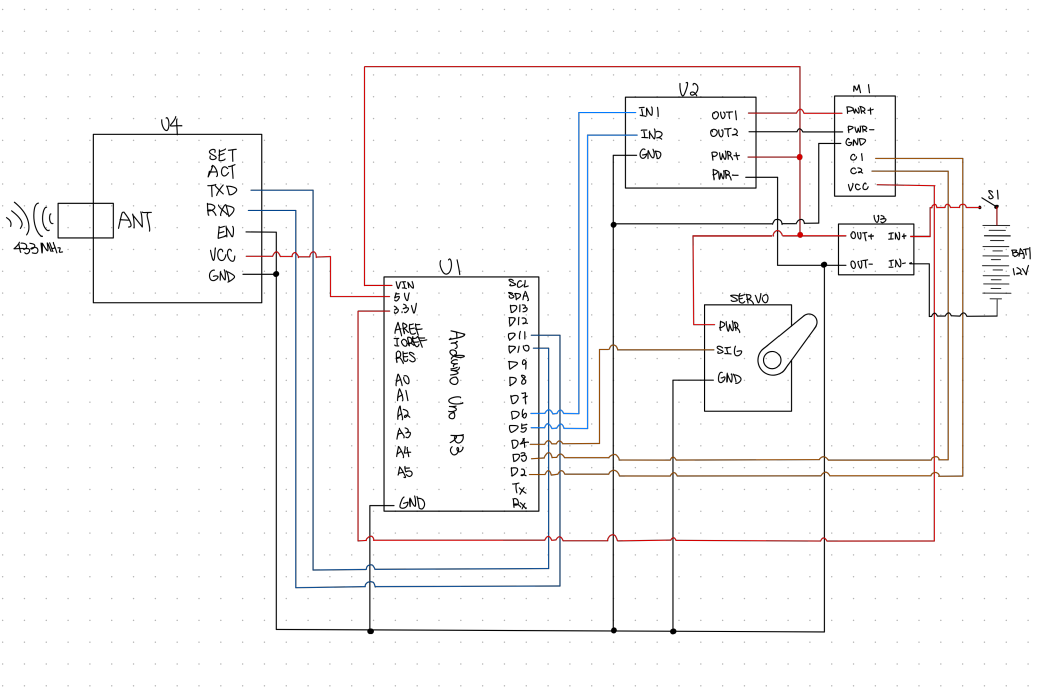 U4
SET
ACT
TXD
RXD
EN
VCC
GND
ANT
433 MHz
U1
VIN
5V
3.3V
AREF
IOREF
RES
A0
A1
A2
A3
A4
A5
GND
Arduino Uno R3
SCL
SDA
D13
D12
D11
D10
D9
D8
D7
D6
D5
D4
D3
D2
Tx
Rx
U2
IN1
IN2
GND
OUT1
OUT2
PWR+
PWR-
M1
PWR+
PWR-
GND
C1
C2
VCC
U3
OUT+
IN+
OUT-
IN-
S1
BAT1
12V
SERVO
PWR
SIG
GND